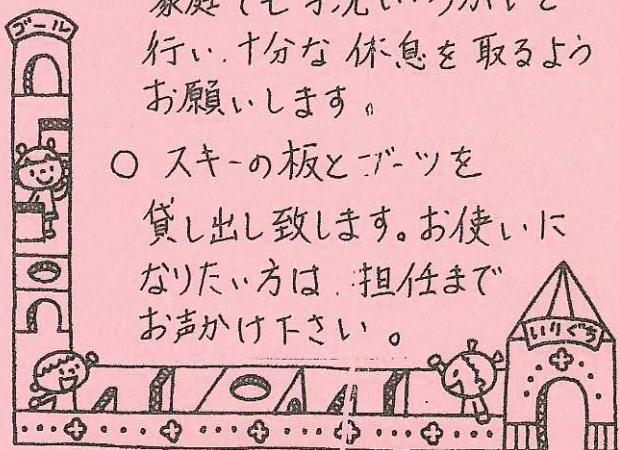 ゴール
家庭でも手洗いうがいを
行い、十分な休息を取るよう
お願いします。
○ スキーの板とブーツを
貸し出し致します。お使いに
なりたい方は、担任まで
お声かけ下さい。
いりぐち